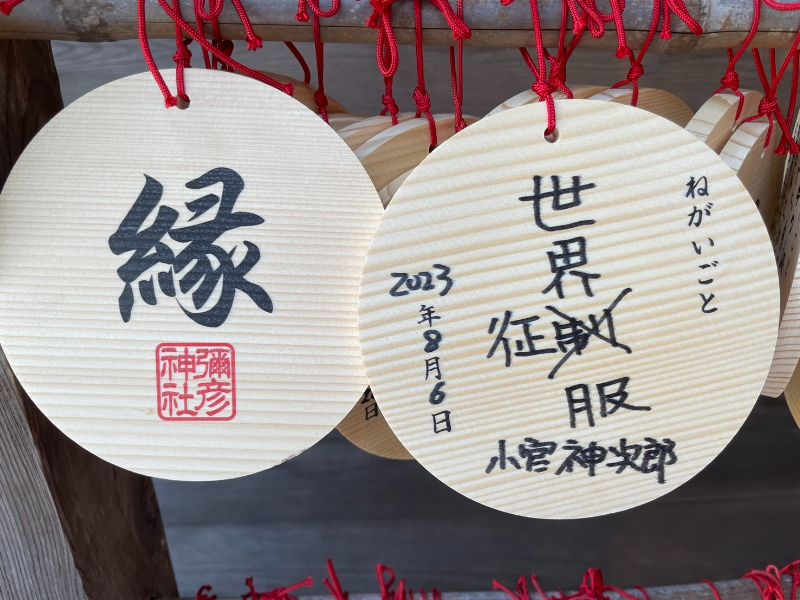 縁
彌彦
神社
ねがいごと
世界征制服
小宮神次郎
2023年8月6日